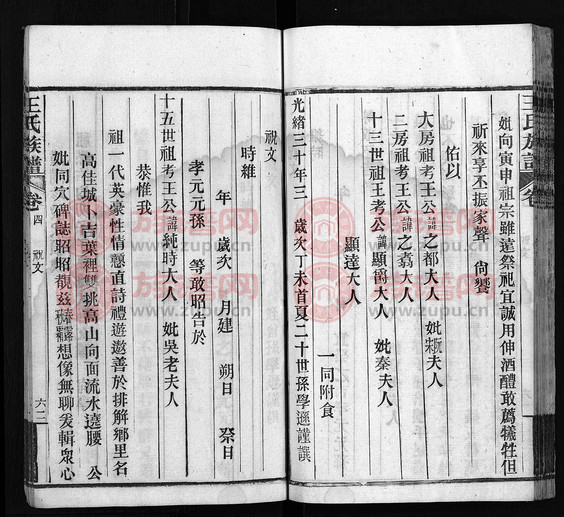 王氏族譜 卷
妣向寅申祖崇雖遠祭祀宜誠用伸酒醴敢薦犧牲但
祈來享丕振家聲 尙饗
佑以
大房祖考王公諱之都大人 妣
二房祖考王公諱之翥大人
十三世祖考王公諱顯爵大人 妣秦大人
顯達大人
一同附食
光緒三十年三 歲次丁未首夏二十世孫學遜謹譔
祝文
時維
年 歲次 月建 朔日 祭日
孝元元孫 等敢昭告於
十五世祖考王公諱純時大人 妣吳老夫人
恭惟我
祖一代英豪性情戇直詩禮遊遨善於排解鄉里名
高佳城卜吉葉裡雙挑高山向面流水遶腰 公
妣同穴碑誌昭昭覩茲 想像無聊爰輯衆心
王氏族譜 卷四 祝文 六二
族譜网
www.zupu.cn
族譜网
www.zupu.cn
族譜网
www.zupu.cn
族譜网
www.zupu.cn